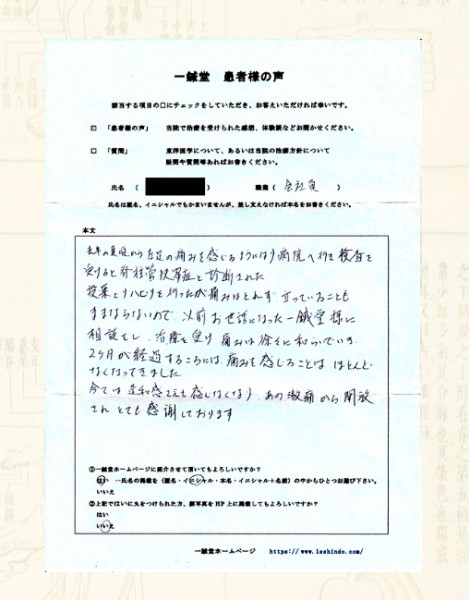 一鍼堂 患者様の声
該当する項目の□にチェックをしていただき、お答えいただければ幸いです。
□ 「患者様の声」 当院で治療を受けられた感想、体験談などお聞かせください。
□ 「質問」 東洋医学について、あるいは当院の治療方針について
疑問や質問等あればお書きください。
氏名 ( ) 職業 ( 会社員 )
氏名は匿名、イニシャルでもかまいませんが、差し支えなければ本名をお書きください。
本文
の夏頃から左足の痛みを感じるようになり病院へ行き検査を
受けると脊柱管狭窄症と診断された
投薬とリハビリを行ったが痛みはとれず 立っていることも
ままならないので、以前お世話になった一鍼堂様に
相談をし、治療を受け 痛みは徐々に和らいでいき
2ヶ月が経過するころには、痛みを感じることは ほとんど
なくなってきました
今では違和感さえも感じなくなり、あの激痛から開放
され とても感謝しております
①一鍼堂ホームページに紹介させて頂いてもよろしいですか?
はい →氏名の掲載を(匿名・イニシャル・本名・イニシャル+名前)の中からひとつお選び下さい。
いいえ
②上記ではいに丸をつけられた方、顔写真をHP上に掲載してもよろしいですか?
はい
いいえ
一鍼堂ホームページ https://www.isshindo.com/